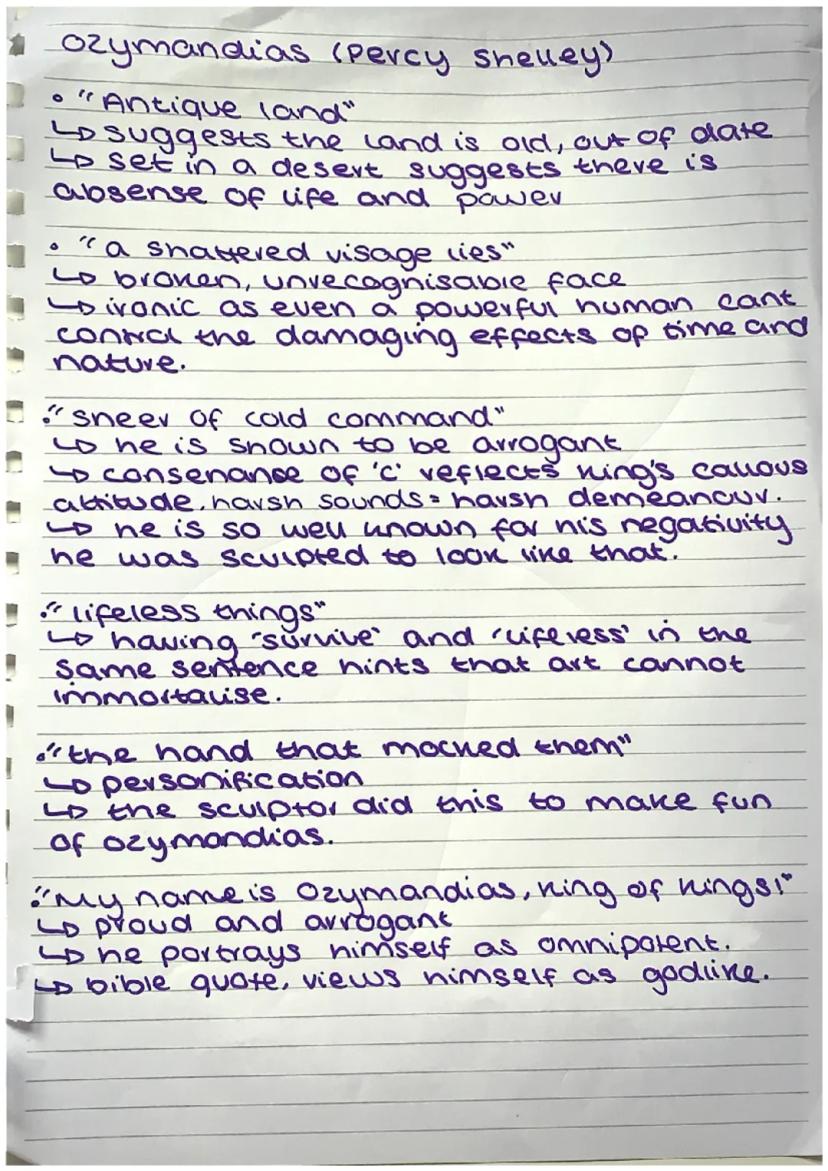 Ozymandias (Percy Shelley)
• "Antique land"
↳ suggests the land is old, out of date
↳ set in a desert suggests there is
absense of life and power
• "a shattered visage lies"
↳ broken, unrecognisable face
↳ ironic as even a powerful human cant
control the damaging effects of time and
nature.
• "sneer of cold command"
↳ he is shown to be arrogant
↳ consenanse of 'c' reflects king's callous
attitude, harsh sounds = harsh demeanour.
↳ he is so well known for his negativity
he was sculpted to look like that.
• "lifeless things"
↳ having 'survive' and 'lifeless' in the
same sentence hints that art cannot
immortalise.
• "the hand that mocked them"
↳ personification
↳ the sculptor did this to make fun
of ozymandias.
• "My name is Ozymandias, king of kings!"
↳ proud and arrogant
↳ he portrays himself as omnipotent.
↳ bible quote, views himself as godlike.